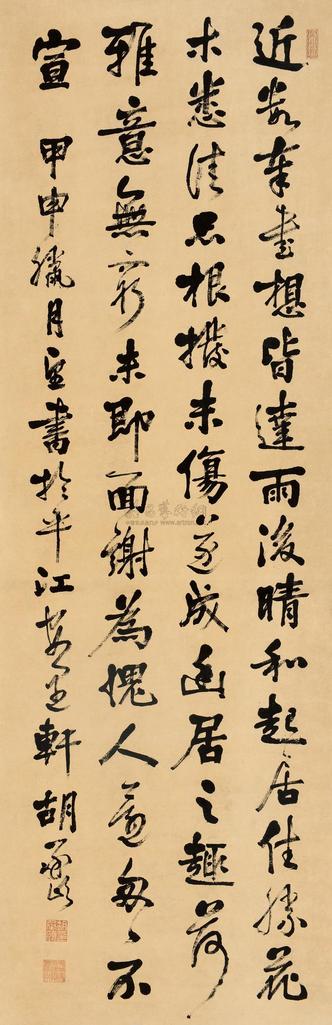 近奉書想皆達雨後晴和起居佳勝花
木悉佳品根撥未傷遂成幽居之趣荷
雅意無窮未即面謝為愧人還匆匆不
宣 甲申臘月望書於平江軒胡